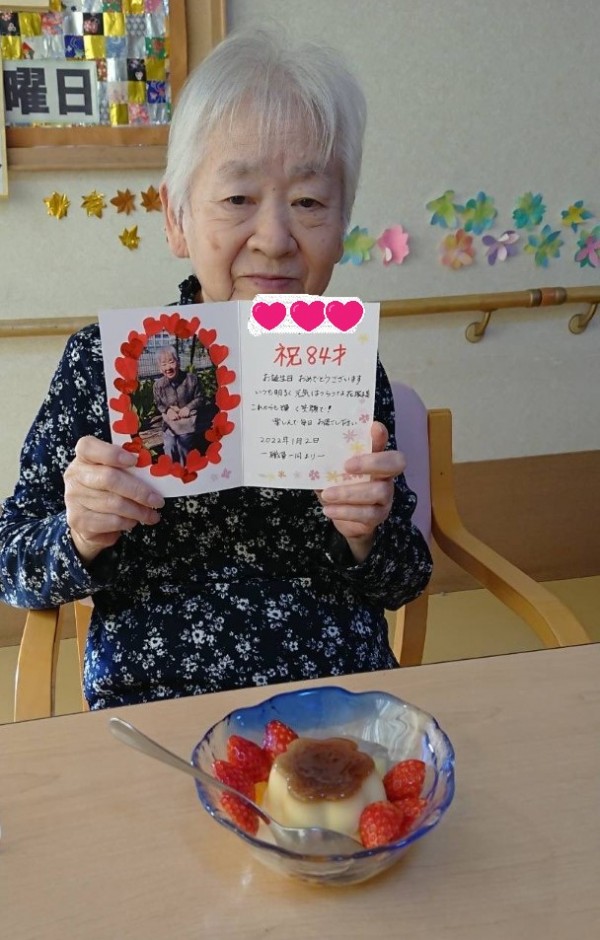 曜日
祝84才
お誕生日 おめでとうございます
いつも明るく 元気
これからも
笑顔で!
楽しんで 毎日 お過ごし下さい
2022年1月2日
ー職員一同よりー